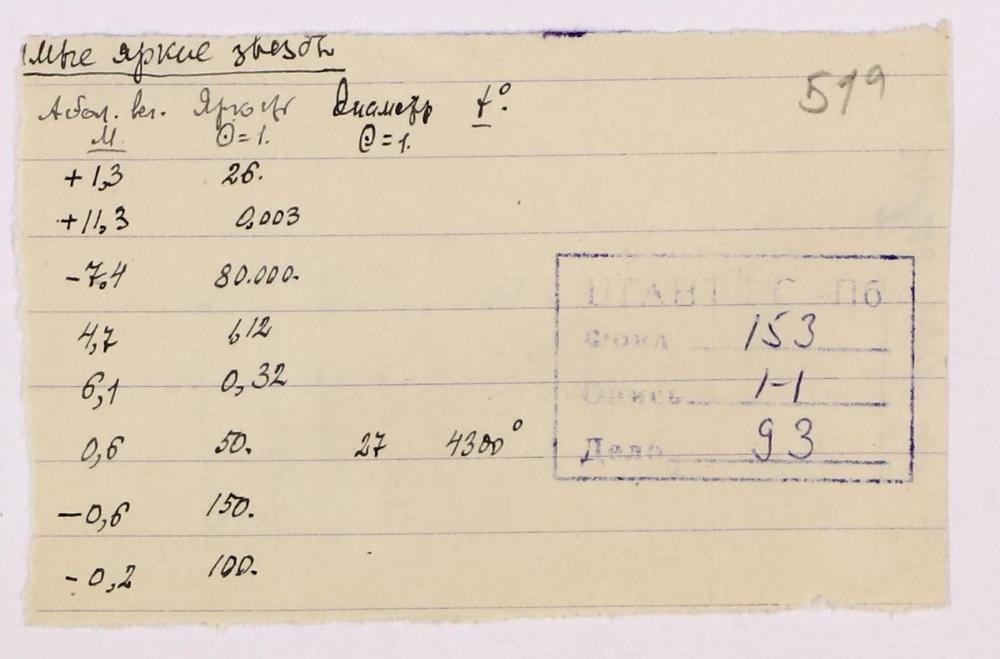 мые яркие звезды
519
Абсол. вел. Яркость Диаметр t°.
М ☉=1. ☉=1.
+1,3 26.
+11,3 0,003
-7,4 80.000.
4,7 1,12
6,1 0,32
0,6 50. 27 4300°
-0,6 150.
-0,2 100.
ЦГАНТД С-Пб
Фонд 153
Опись 1-1
Дело 93